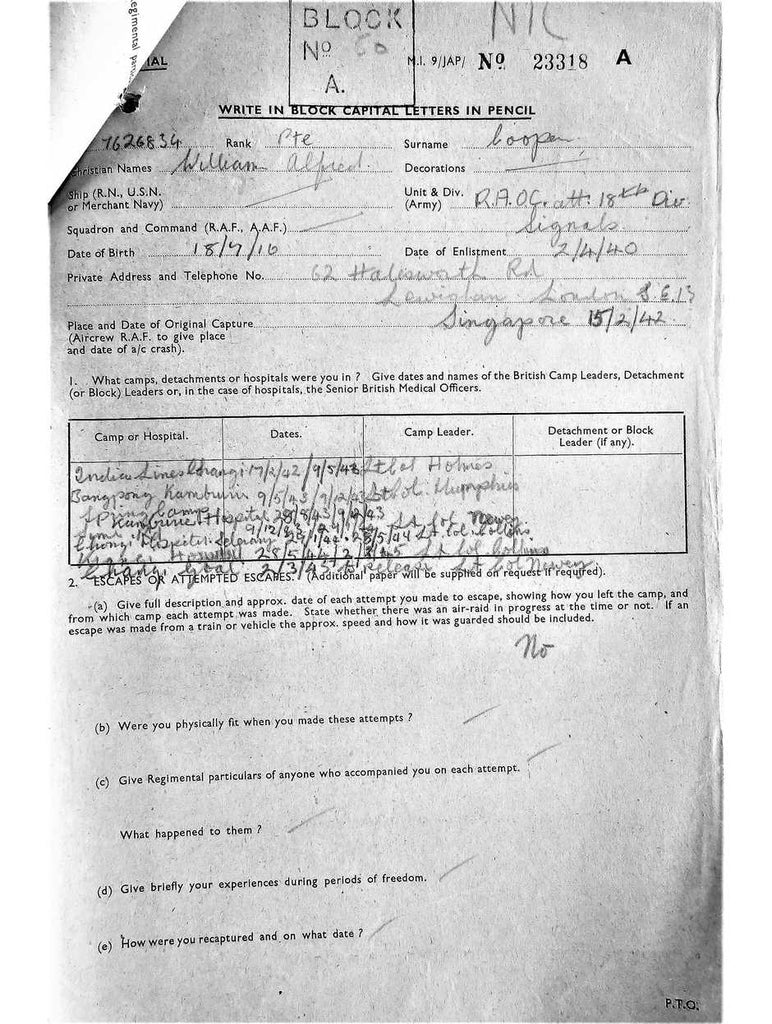 BLOCK
Nº 60
A.
NIL
M.I. 9/JAP/ Nº 23318 A
WRITE IN BLOCK CAPITAL LETTERS IN PENCIL
7626834 Rank Pte Surname Cooper
Christian Names William Alfred. Decorations
Ship (R.N., U.S.N. or Merchant Navy)
Unit & Div. (Army) R.A.O.C. att. 18th Div
Signals
Squadron and Command (R.A.F., A.A.F.)
Date of Birth 18/7/16 Date of Enlistment 2/4/40
Private Address and Telephone No. 62 Halesworth Rd
Lewisham London S.E.13
Place and Date of Original Capture Singapore 15/2/42
(Aircrew R.A.F. to give place
and date of a/c crash).
1. What camps, detachments or hospitals were you in ? Give dates and names of the British Camp Leaders, Detachment
(or Block) Leaders or, in the case of hospitals, the Senior British Medical Officers.
Camp or Hospital. Dates. Camp Leader. Detachment or Block Leader (if any).
India Lines Changi 17/2/42 / 9/5/43 Lt Col Holmes
Bangpong Kamburi 9/5/43 / 9/12/43 Lt Col. Humphries
Kamburie Hospital 28/8/43 / 9/12/43
Hospital. Selarang 24/1/44. 28/5/44 Lt Col. Collins
Hospital 28/5/44 / 2/3/45 Lt Col Collins
Changi Goal. 2/3/45 to Release Lt Col Newey
2. ESCAPES OR ATTEMPTED ESCAPES. (Additional paper will be supplied on request if required).
(a) Give full description and approx. date of each attempt you made to escape, showing how you left the camp, and
from which camp each attempt was made. State whether there was an air-raid in progress at the time or not. If an
escape was made from a train or vehicle the approx. speed and how it was guarded should be included.
No
(b) Were you physically fit when you made these attempts ?
(c) Give Regimental particulars of anyone who accompanied you on each attempt.
What happened to them ?
(d) Give briefly your experiences during periods of freedom.
(e) How were you recaptured and on what date ?
P.T.O.